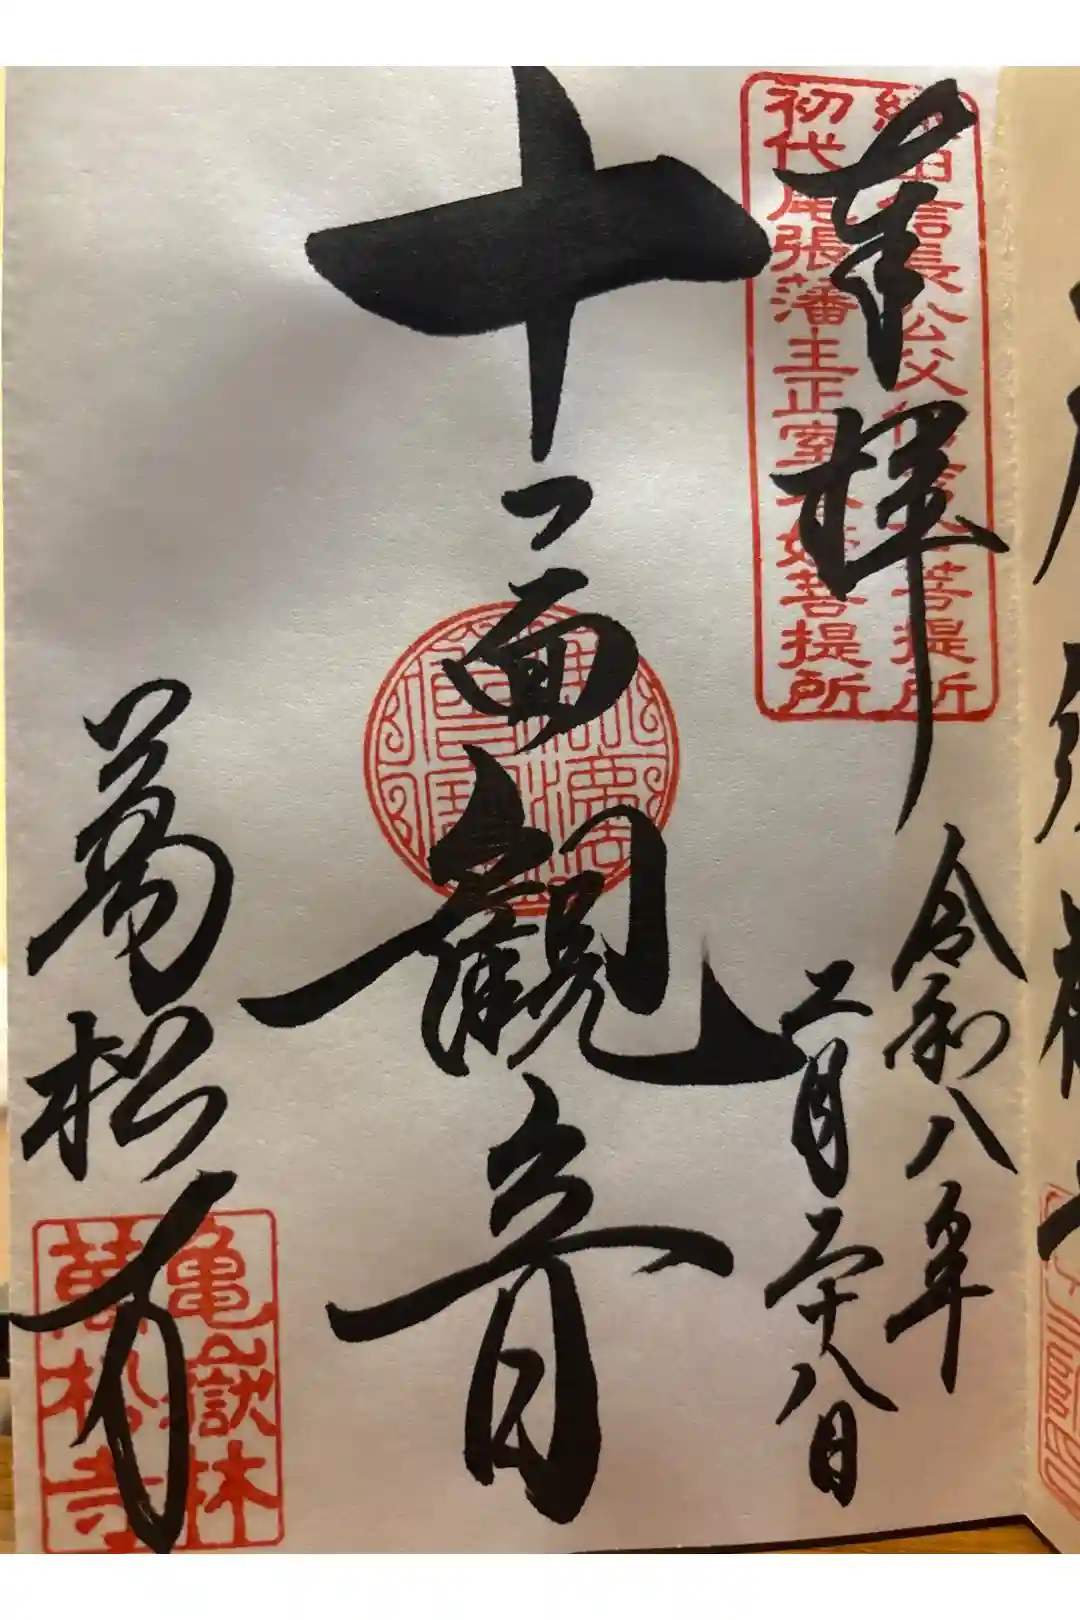 奉拝
織田信長公父信秀公菩提所
初代尾張藩主正室春姫菩提所
令和八年
二月二十八日
十一面観音
萬松寺
亀嶽林
萬松寺